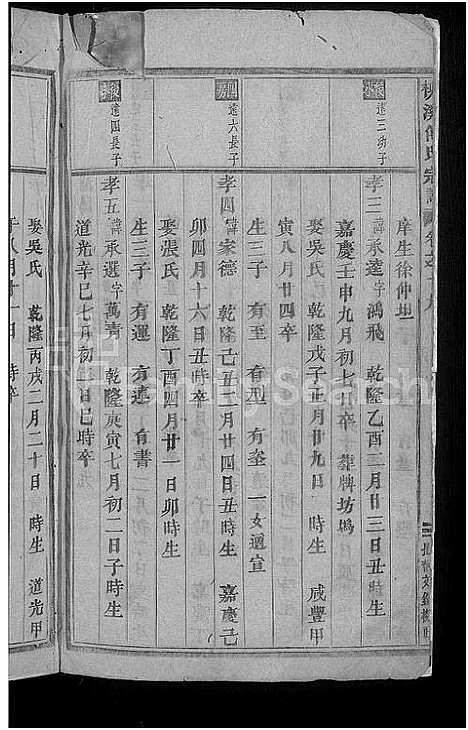 庠生徐仲坦
遠三幼子
孝三諱承逵字鴻飛　乾隆乙酉二月廿三日丑時生
嘉慶壬申九月初七卒　葬牌坊塢
娶吳氏　乾隆戊子正月廿九日　時生　咸豐甲
寅八月廿四卒
生三子　有至　有型　有奎　一女適宜
遠六長子
孝四諱家德　乾隆己丑十二月廿四日丑時生　嘉慶己
卯四月十六日丑時卒
娶張氏　乾隆丁酉四月廿一日卯時生
生三子　有運　有達　有書
遠四長子
孝五諱承選字萬青　乾隆庚寅七月初二日子時生
道光辛巳七月初二日巳時卒
娶吳氏　乾隆丙戌二月二十日　時生　道光甲
FamilySearch